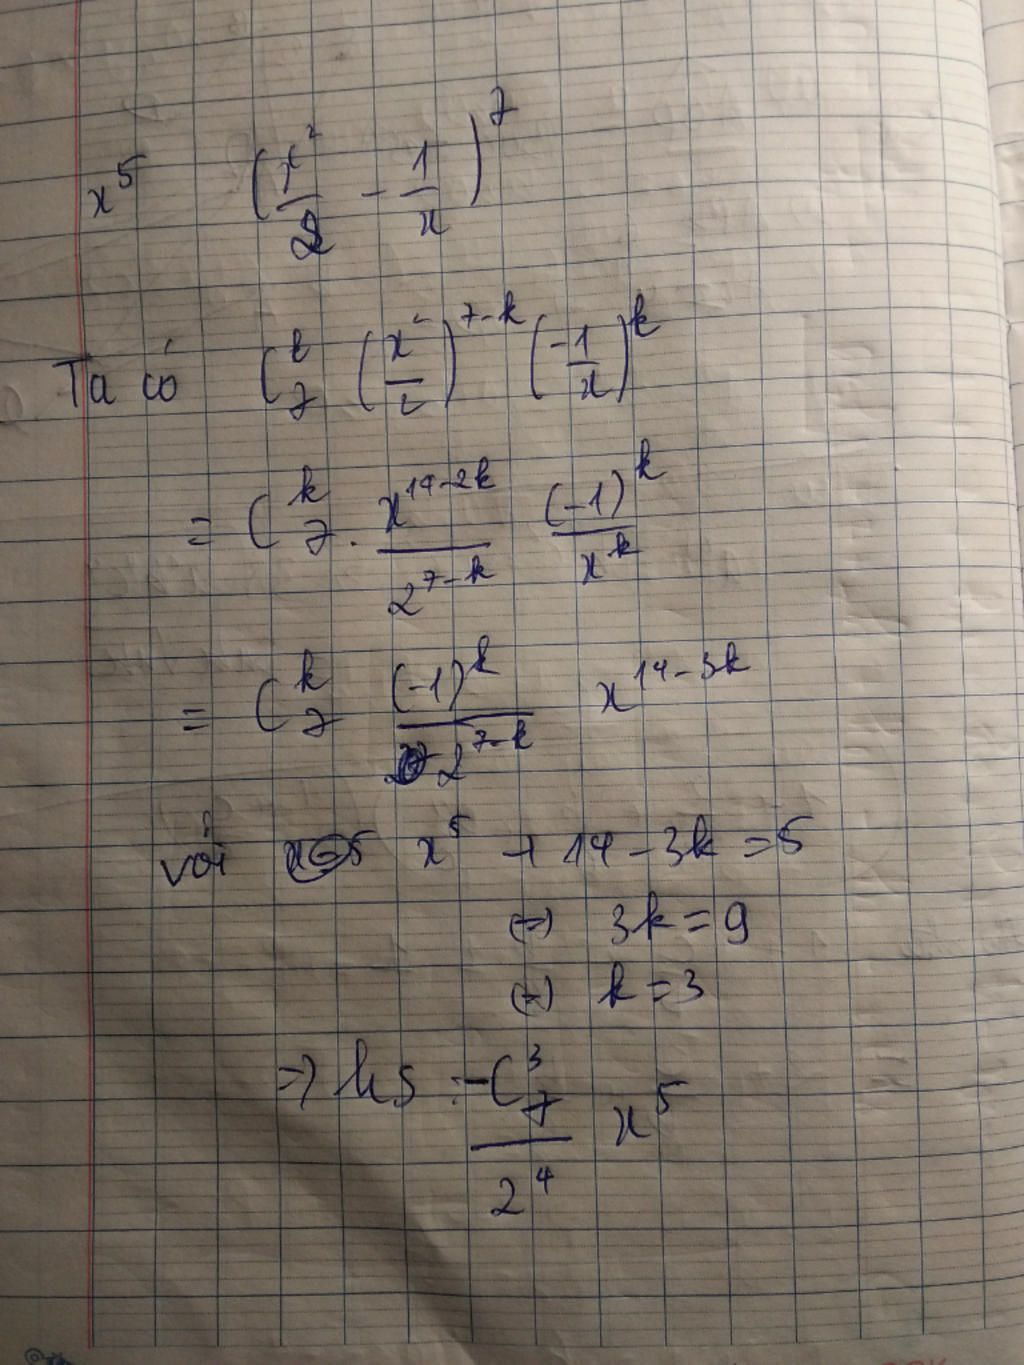 x⁵ (x²/2 - 1/x)⁷
Ta có C₇ᵏ (x²/2)⁷⁻ᵏ (-1/x)ᵏ
= C₇ᵏ . x¹⁴⁻²ᵏ/2⁷⁻ᵏ (-1)ᵏ/xᵏ
= C₇ᵏ (-1)ᵏ/2⁷⁻ᵏ x¹⁴⁻³ᵏ
với x⁵ → 14 - 3k = 5
(=) 3k = 9
(=) k = 3
=) hs : -C₇³/2⁴ x⁵